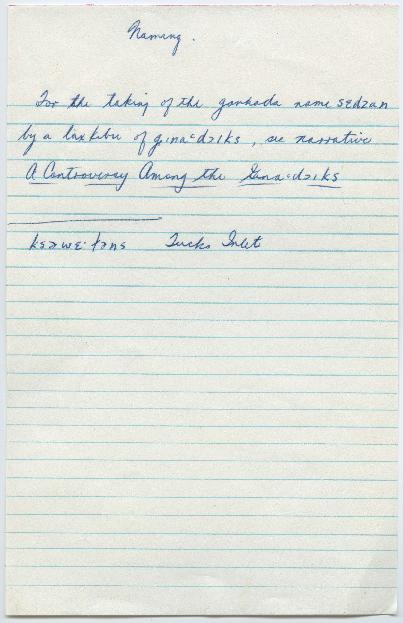 Naming.
For the taking of the ganhada name sɛdzan
by a laxkibu of gɪnaᶜdɔiks, see narrative
A Controversy Among the Gɪnaᶜdɔiks
ksɔwɛ·ɫɔns Tucks Inlet